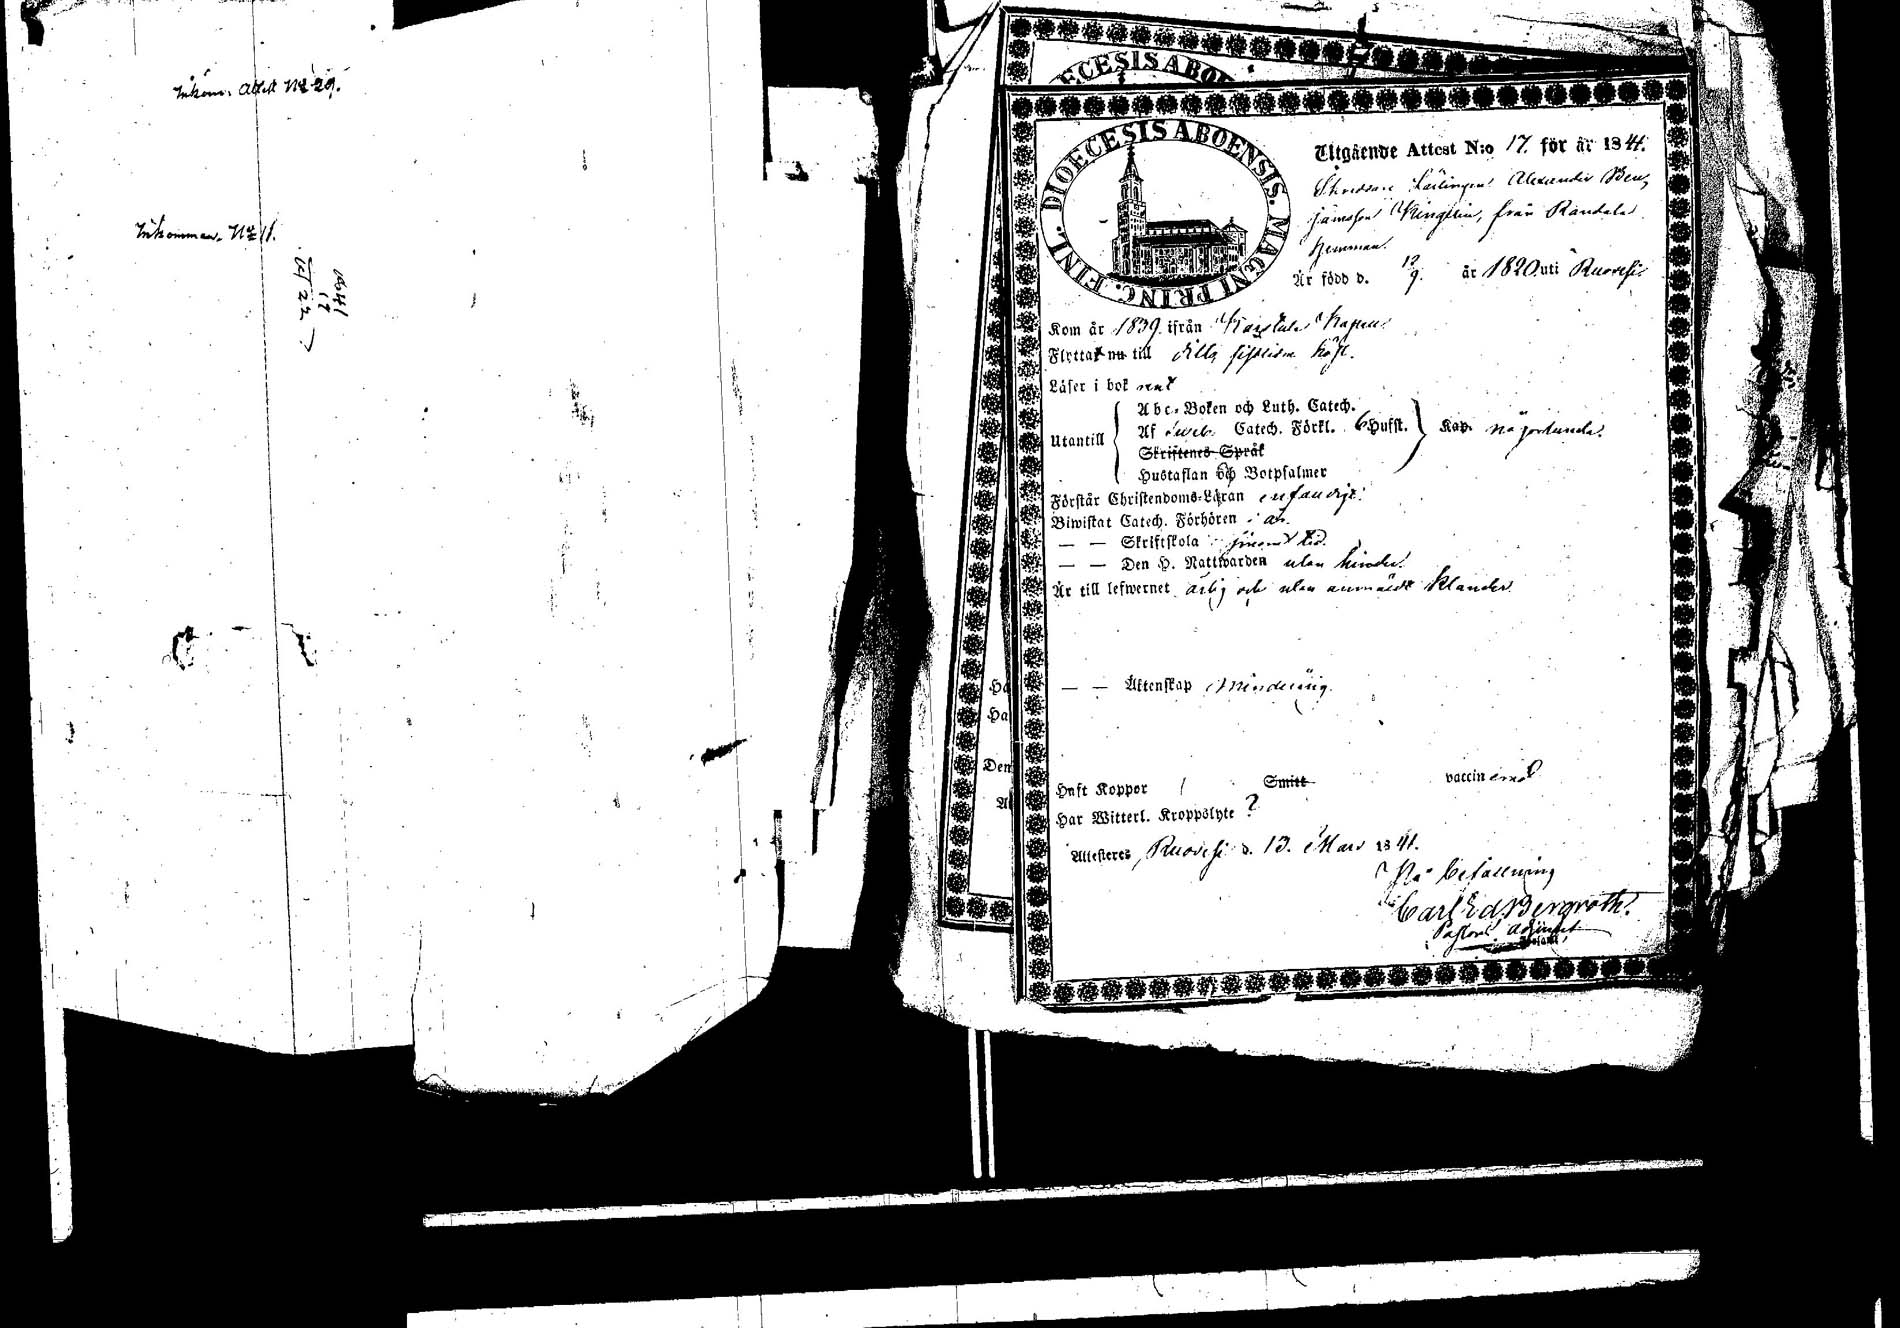 Inkom. Attest No 29.
Inkomman. No 11.
1841
ECESIS ABO
DIOECESIS ABOENSIS. MAGNI PRINC. FINL.
Utgående Attest N:o 17. för år 1841.
Skreddare Lärlingen Alexander Ben-
jamsson Ringelin, från Randala
hemman.
Är född d. 12/9. år 1820 uti Ruovesi
Kom år 1839 ifrån Karstula Kapell
Flyttat nu till
Läser i bok rent
Utantill
Abc-Boken och Luth. Catech.
Af Sveb. Catech. Förkl. 6 Hufst. Kap. någorlunda.
Skriftenes Språk
Hustaflan och Botpsalmer
Förstår Christendoms-Läran enfaldigt.
Biwistat Catech. Förhören i år.
— — Skriftskola
— — Den H. Nattwarden utan hinder.
Är till lefwernet ärlig och utan anmäldt klander
— — Äktenskap Minderårig.
Haft Koppor / Smitt vaccinerad
Har Witterl. Kroppslyte ?
Attesteres Ruovesi d. 13. Mars 1841.
På befallning
Carl Ed. Bergroth.
Pastors Adjunct
Ha
Ha
Den